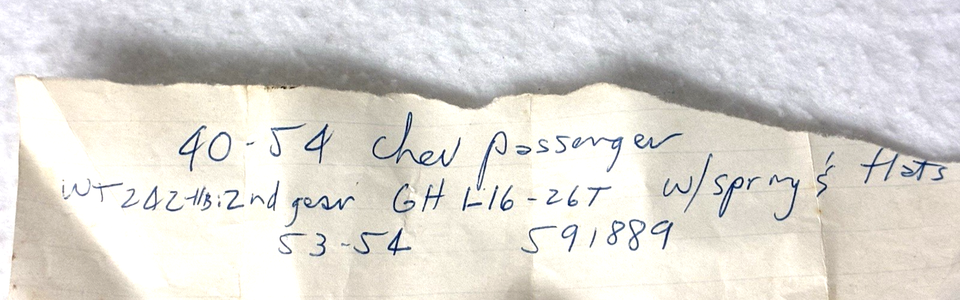 40-54 Chev passenger
WT 242-11B: 2nd gear GH L16-26T w/spring & flats
53-54 591889